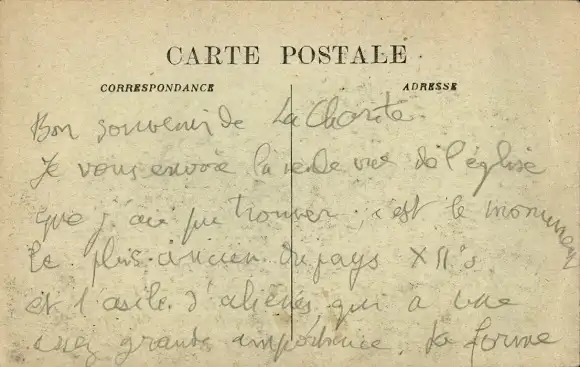 CARTE POSTALE
CORRESPONDANCE
ADRESSE
Bon souvenir de La Charité.
Je vous envoie la seule vue de l'église
que j'ai pu trouver, c'est le monument
le plus ancien du pays XII s
et l'asile d'aliénés qui a une
assez grande importance. La forme